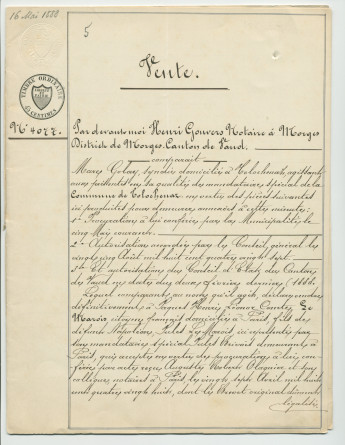 16 Mai 1888
5
Vente.
TIMBRE ORDINAIRE
CENTIMES
N° 4077.
Par devant moi Henri Gouvers Notaire à Morges
District de Morges, Canton de Vaud.
comparaît
Marc Golay, syndic domicilié à Tolochenaz agissant
aux présentes en sa qualité de mandataire spécial de la
Commune de Tolochenaz, en vertu des pièces suivantes
ici produites pour demeurer annexées à la minute:
1° Procuration à lui conférée par la Municipalité le
cinq Mai courant.
2° Autorisation accordée par le Conseil général le
vingt cinq Août mil huit cent quatre vingt sept
3° Et autorisation du Conseil d'Etat du Canton
de Vaud en date du deux Février dernier (1888.
Lequel comparant, au nom qu'il agit, déclare vendre
définitivement à
Marois citoyen français domicilié à Paris, fils de
défunt Napoléon Pelet Le Marois, ici représenté par
son mandataire spécial
Paris, qui accepte en vertu des procurations à lui con-
férées par acte reçu Auguste
collègue notaires à Paris, le vingt sept Avril mil huit
cent quatre vingt huit, dont le Brevet original dûment
légalisé